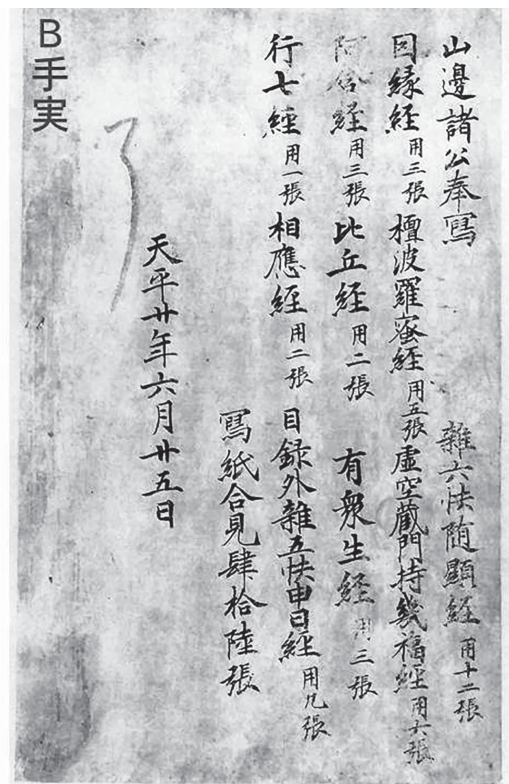 山邊諸公奉寫 雜六帙随顯経 用十二張
因縁経 用三張 檀波羅蜜経 用五張 虚空蔵門持幾福経 用六張
阿含経 用三張 比丘経 用二張 有衆生経 用三張
行七経 用一張 相應経 用二張 目録外雜五帙申日経 用九張
寫紙合見肆拾陸張
天平廿年六月廿五日
B手実